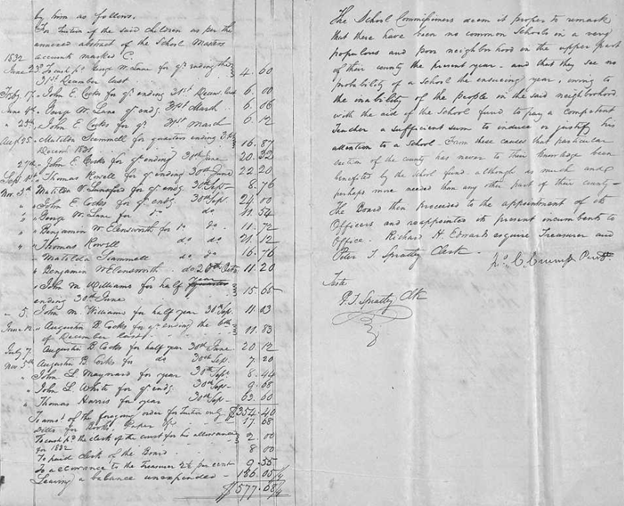 by him as follows.
For tuition of the said children as per the
annexed abstract of the School Masters
accounts marked C.
1832
June 23 To cash pd George W. Lane for qr ending the
31st December last 4.60
July 17 " John E. Cooks for qr ending 31st Decem. last 6.00
June 9th " George W. Lane qr endg 31st March 6.06
" 23rd " John E. Cooks for qr 31st March 6.12
" Matilda Trammell for quarters ending
December 1831 16.87
27th " John E. Cooks for qr ending 30th June 20.32
" Thomas Rowell for qr ending 30th June 22.20
Nov. 5th " W. Lunsford for qr endg 30th Sept 8.76
" John E. Cooks for qr endg 30th Sept 24.00
" George W. Lane for do do 11.54
" Benjamin W. Elensworth for do do 11.72
" Thomas Rowell do do 21.12
" Matilda Trammell do do 16.76
" Benjamin W. Elensworth do 11.20
" John M. Williams for half year
ending 30th June 15.65
" 5 John M. Williams for half year 30th Sept 11.03
June " Augustus B. Cooks for qr ending the
of December last 11.83
July 7 Augustus B. Cooks for half year 30th June 20.12
Nov. 5th Augustus B. Cooks for do 30th Sept 7.20
" John L. Maynard for year 30th Sept 8.44
" John L. White for qr endg 30th Sept 9.68
" Thomas Harris for year 30th Sept 63.60
To amt of the foregoing order for tuition only $354.40
Ditto for Books Paper &c 17.68
To cash pd the clerk of the court for his allowance
for 1832 2.00
To paid Clerk of the Board 8.00
To allowance to the Treasurer 2½ per cent 9.55
Leaving a balance unexpended 186.05
$577.68
The School Commissioners deem it proper to remark
that there have been no common Schools in a very
populous and poor neighborhood in the upper part
of their county the present year, and that they see no
probability of a School the ensuing year, owing to
the inability of the people in the said neighborhood
with the aid of the School fund to pay a competent
Teacher a sufficient sum to induce or justify his
attention to a School. From these causes that particular
section of the county has never to their knowledge been
benefited by the school fund although as much and
perhaps more needed than any other part of their county –
The Board then proceeded to the appointment of its
Officers and reappointed its present incumbents to
Office. Richard H. Edwards esquire Treasurer and
Peter T. Spratley Clerk.
Crump Prest.
Teste
P. T. Spratley Clk